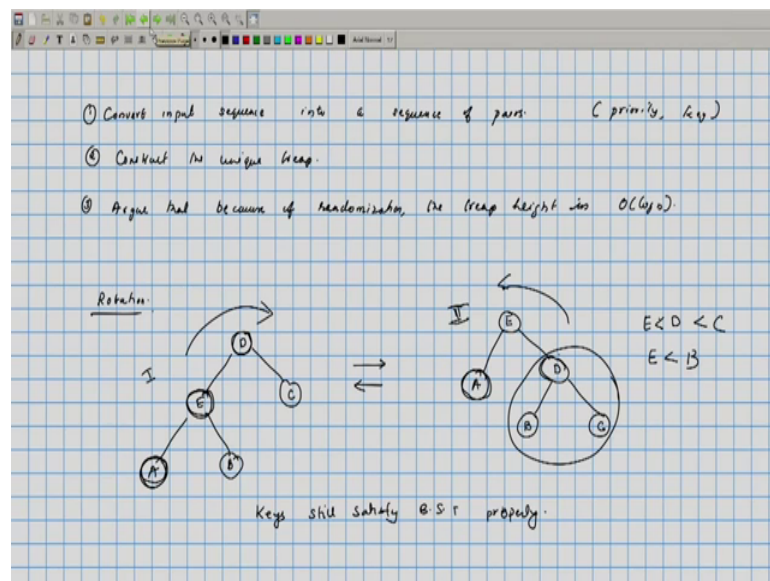 ① Convert input sequence into a sequence of pairs. (priority, key)
② Construct the unique treap.
③ Argue that because of randomization, the treap height is O(log n).
Rotation.
I
D
E
C
A
B
II
E
A
D
B
C
E < D < C
E < B
Keys still satisfy B.S.T property.